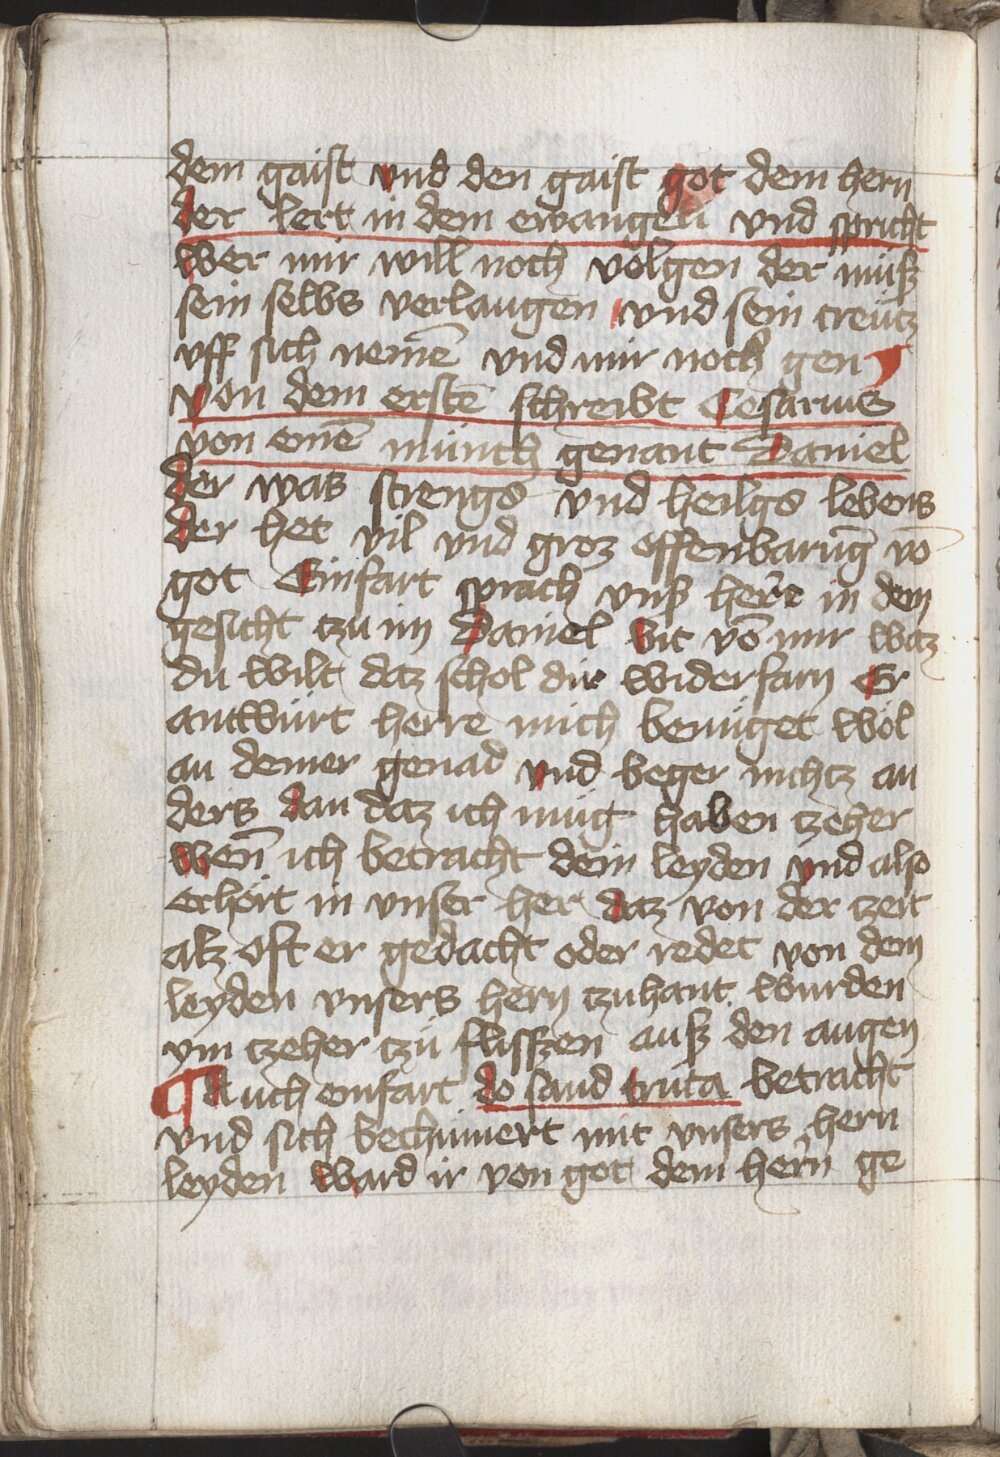 dem gaist vnd den gaist got dem hern
der lert in dem ewangeli vnd spricht
wer mir will noch volgen der muß
sein selbs verlaugen vnd sein creütz
vff sich nemē vnd mir noch gen
von dem erstē schreibt Cesarius
von einē münch genant Daniel
der was strengs vnd heilgs lebens
der het vil vnd groz offenbarūg vō
got Einfart sprach vnß herre in dem
gesicht tzu im Daniel bit vō mir waz
du wilt daz schol dir widerfarn Er
antwürt herre mich benüget wol
an deiner genad vnd beger nichtz an
ders dan daz ich müg haben tzeher
wen̄ ich betracht dein leyden vnd also
erhört in vnser her daz von der zeit
alz oft er gedacht oder redet von dem
leyden vnsers hern tzuhant wurden
ym tzeher tzü flisszen auß den augen
Auch einfart do sand truta betracht
vnd sich bechümert mit vnsers hern
leyden ward ir von got dem hern ge